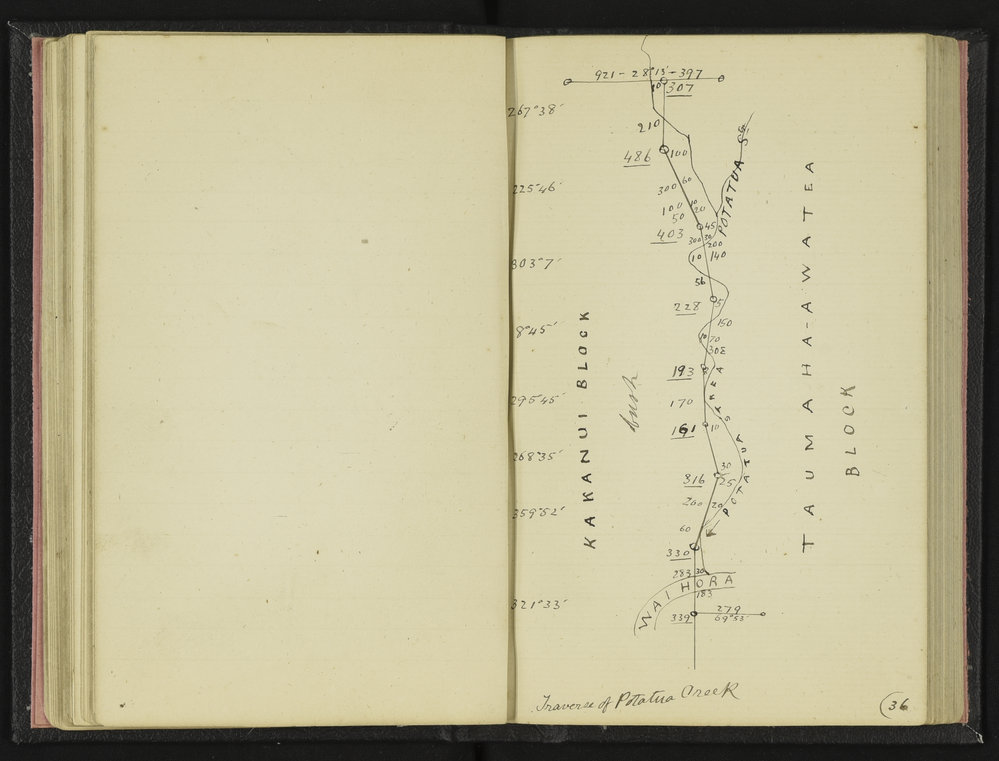 921 - 28°13' - 397
10 307
267°38'
210
486 100
225°46'
300 60
100 10
50 20
POTATUA Sg.
403 45
300 30
200
303°7'
10 140
56
228 5
8°45'
150
10 70
30
193
295°45'
170
161 10
268°35'
30
316 25
200 20
359°52'
60
330
283 30
WAIHORA
183
321°33'
339 279
69°53'
KAKANUI BLOCK
bush
POTATUA AREA
TAUMAHA-AWATEA
BLOCK
Traverse of Potatua Creek
36